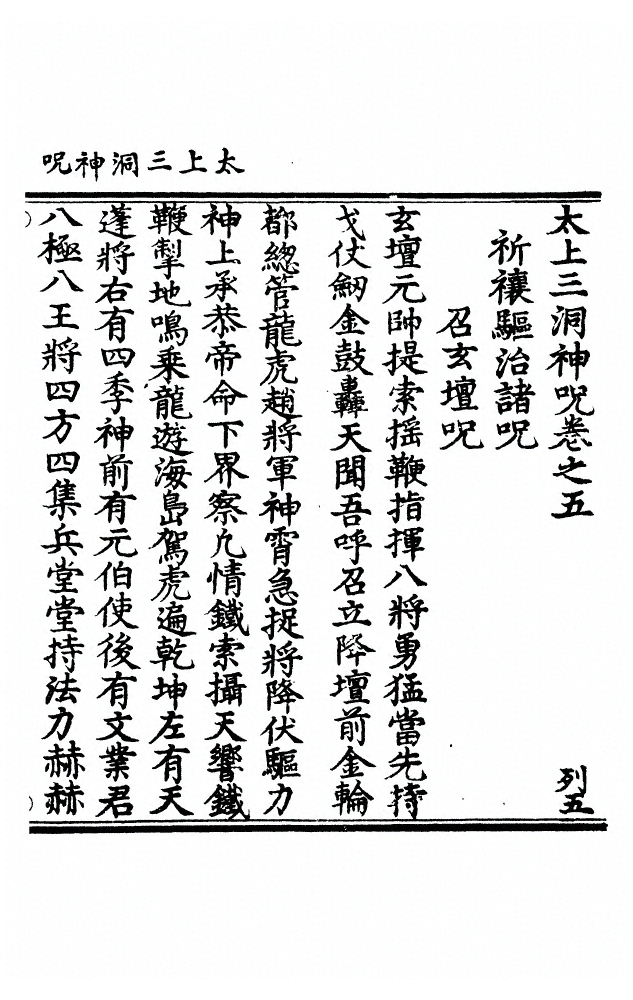 太上三洞神呪
太上三洞神呪卷之五
列五
祈禳驅治諸呪
召玄壇呪
玄壇元帥提索搖鞭指揮八將勇猛當先持
戈仗劒金鼓轟天聞吾呼召立降壇前金輪
都總管龍虎趙將軍神霄急捉將降伏驅力
神上承恭帝命下界察凢情鐵索攝天響鐵
鞭掣地鳴乘龍遊海島駕虎遍乾坤左有天
蓬將右有四季神前有元伯使後有文業君
八極八王將四方四集兵堂堂持法力赫赫